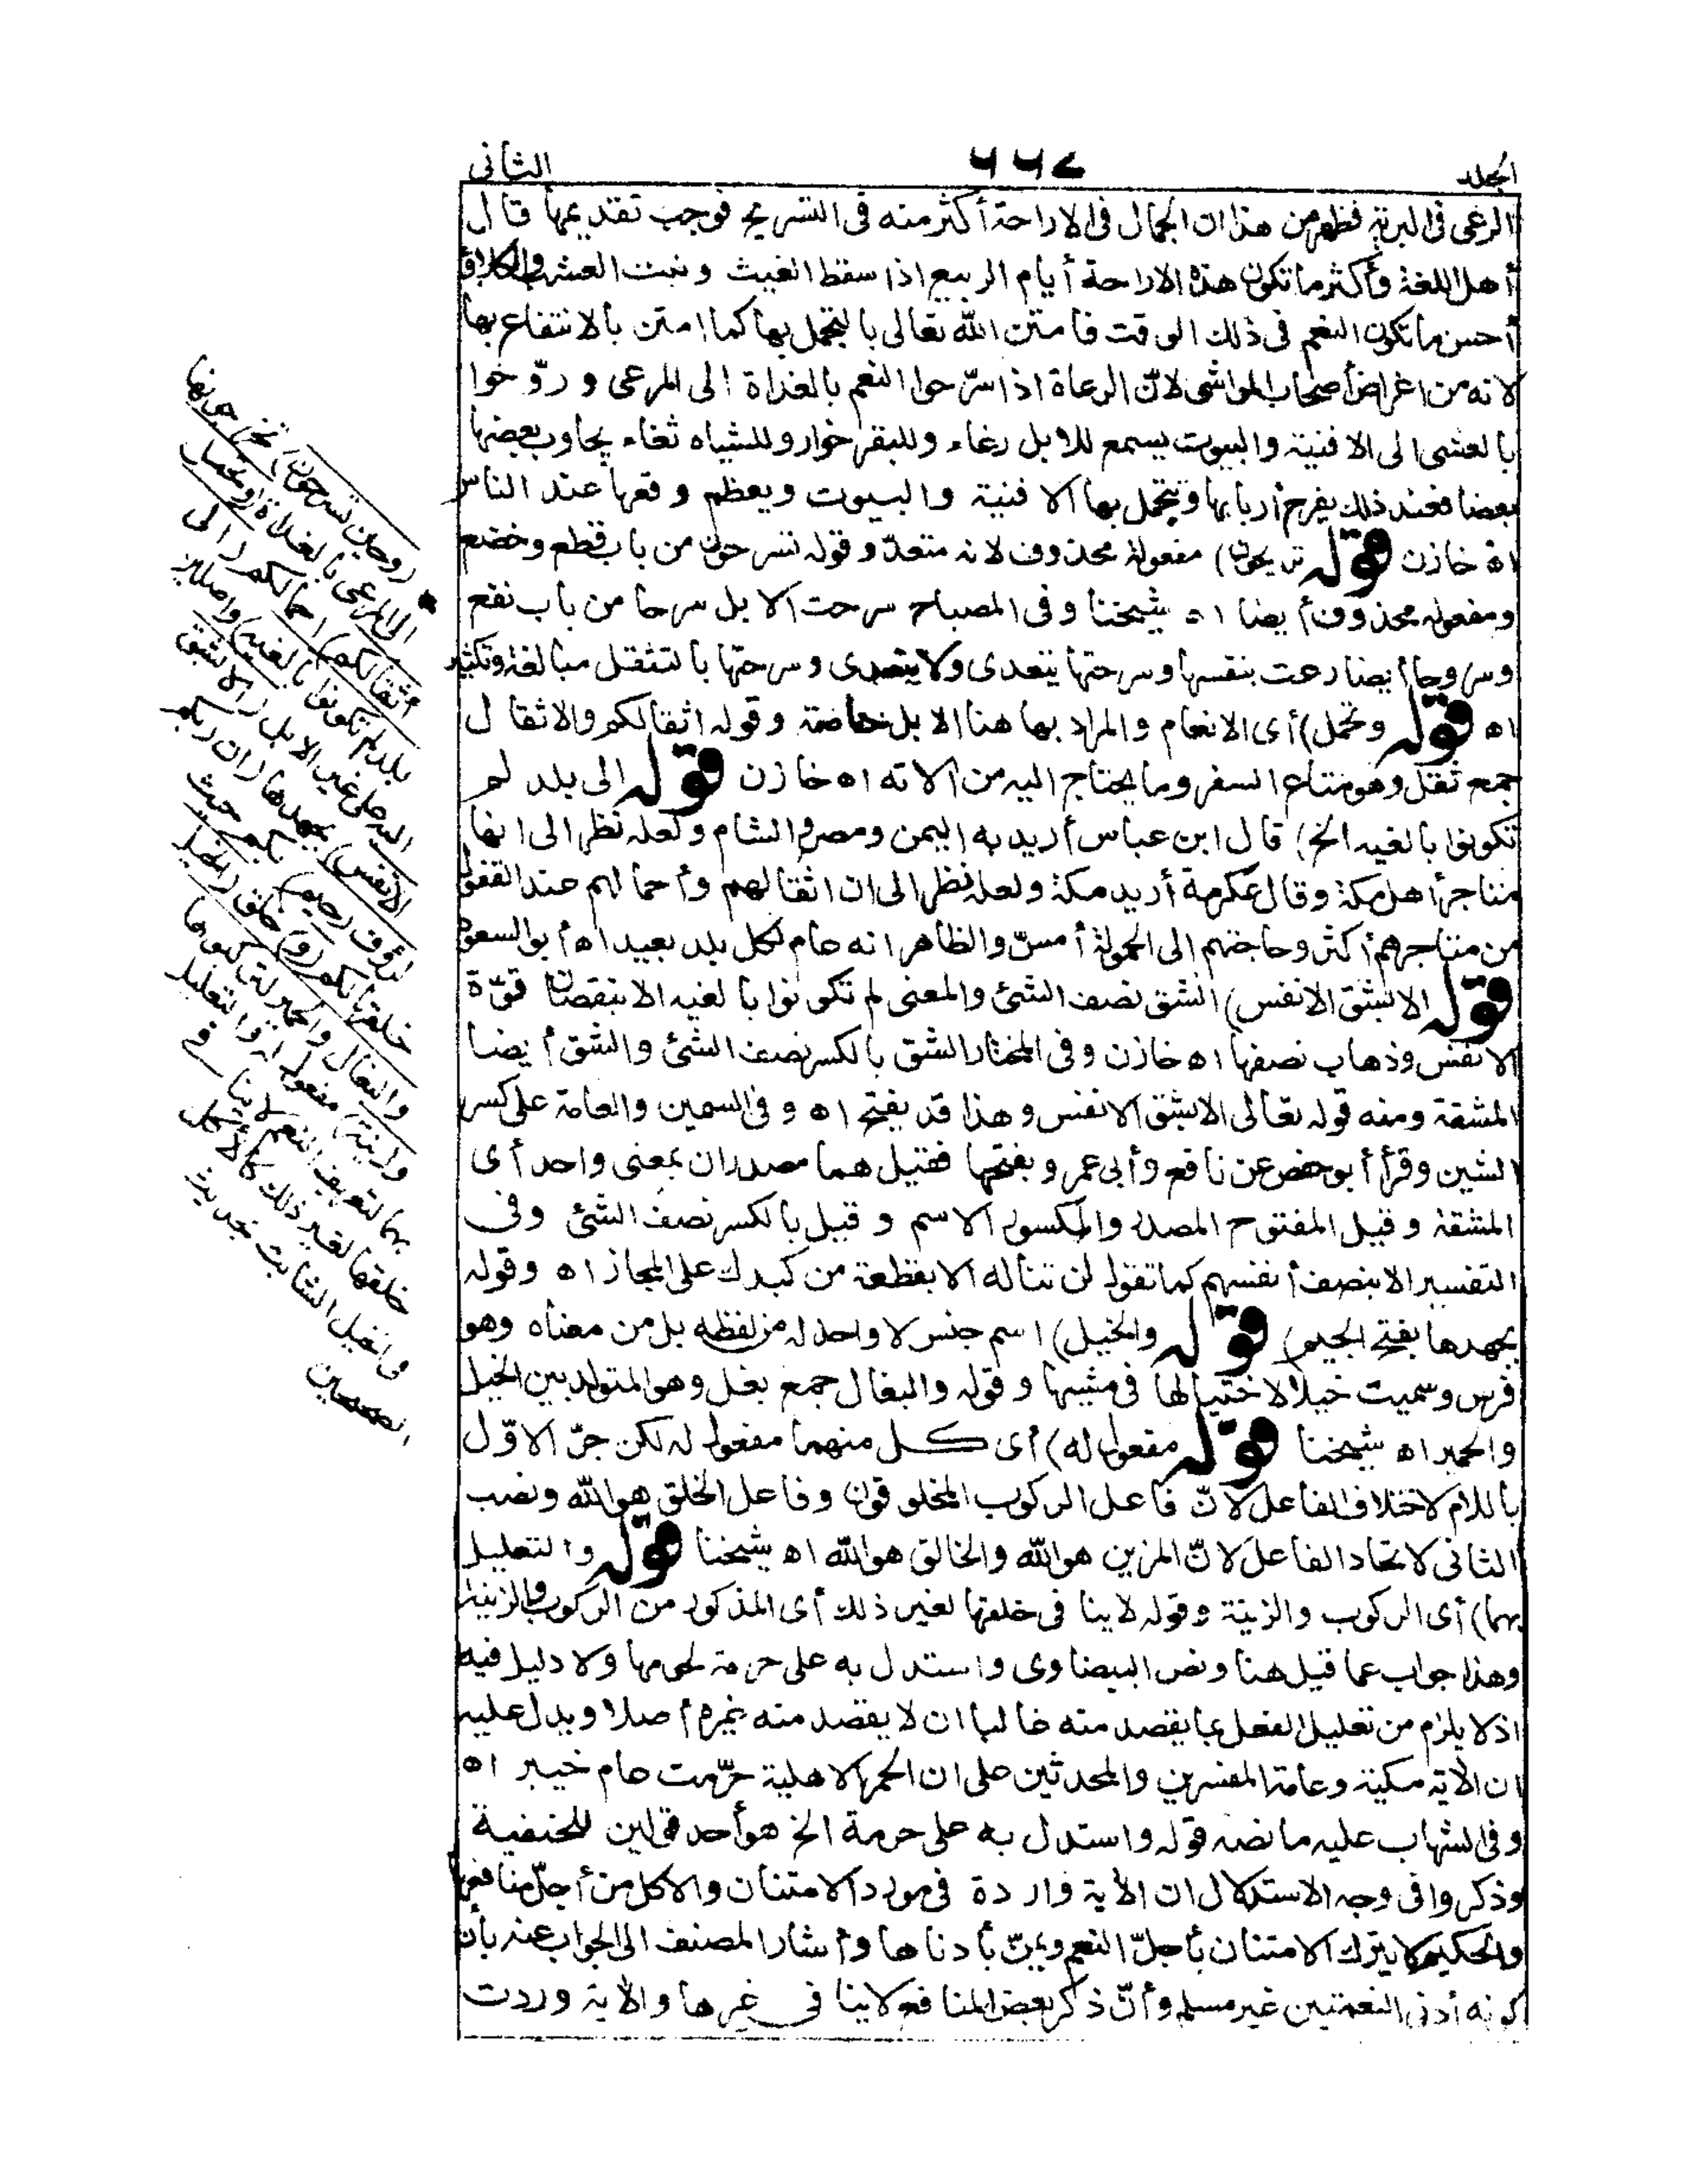 الجلد ٦٦٧ الثانى
الرعى فى البرية فظهر من هذا ان الجمال فى الاراحة أكثر منه فى التسريح فوجب تقديمها قال
أهل اللغة وأكثر ما تكون هذه الاراحة أيام الربيع اذا سقط الغيث ونبت العشب والكلأ و
أحسن ما تكون النعم فى ذلك الوقت فامتن الله تعالى بالتجمل بها كما امتن بالانتفاع بها
لانه من اغراض أصحاب المواشى لانّ الرعاة اذا سرّحوا النعم بالغداة الى المرعى وروّحوا
بالعشى الى الافنية والبيوت يسمع للابل رغاء وللبقر خوار وللشياه ثغاء يجاوب بعضها
بعضا فعند ذلك يفرح أربابها وتتجمل بها الافنية والبيوت ويعظم وقعها عند الناس
اه خازن قوله تريحون) مفعوله محذوف لانه متعدّ وقوله تسرحون من باب قطع وخضع
ومفعوله محذوف أيضا اه شيخنا وفى المصباح سرحت الابل سرحا من باب نفع
وسروحا أيضا رعت بنفسها وسرحتها يتعدى ولا يتعدى وسرحتها بالتثقيل مبالغة وتكثير
اه قوله وتحمل) أى الانعام والمراد بها هنا الابل خاصة وقوله اثقالكم والاثقال
جمع ثقل وهو متاع السفر وما يحتاج اليه من آلاته اه خازن قوله الى بلد لم
تكونوا بالغيه الخ) قال ابن عباس أريد به اليمن ومصر والشام ولعله نظر الى انها
متاجر أهل مكة وقال عكرمة أريد مكة ولعله نظر الى ان اثقالهم وأحمالهم عند القفول
من متاجرهم أكثر وحاجتهم الى الحمولة أمسّ والظاهر انه عام لكل بلد بعيد اه أبو السعود
قوله الا بشق الانفس) الشق نصف الشئ والمعنى لم تكونوا بالغيه الا بنقصان قوّة
الانفس وذهاب نصفها اه خازن وفى المختار الشق بالكسر نصف الشئ والشق أيضا
المشقة ومنه قوله تعالى الا بشق الانفس وهذا قد يفتح اه وفى السمين والعامة على كسر
الشين وقرأ أبو جعفر عن نافع وأبى عمرو بفتحها فقيل هما مصدران بمعنى واحد أى
المشقة وقيل المفتوح المصدر والمكسور الاسم وقيل بالكسر نصف الشئ وفى
التفسير الا بنصف أنفسهم كما تقول لن تناله الا بقطعة من كبدك على المجاز اه وقوله
بجهدها بفتح الجيم) قوله والخيل) اسم جنس لا واحد له من لفظه بل من معناه وهو
فرس وسميت خيلا لاختيالها فى مشيها وقوله والبغال جمع بغل وهو المتولد بين الخيل
والحمير اه شيخنا قوله مفعول له) أى كل منهما مفعول له لكن جرّ الاوّل
باللام لاختلاف الفاعل لانّ فاعل الركوب المخلوقون وفاعل الخلق هو الله ونصب
الثانى لاتحاد الفاعل لانّ المزين هو الله والخالق هو الله اه شيخنا قوله والتعليل
بهما) أى الركوب والزينة وقوله لا ينا فى خلقها لغير ذلك أى المذكور من الركوب والزينة
وهذا جواب عما قيل هنا ونص البيضاوى واستدل به على حرمة لحومها ولا دليل فيه
اذ لا يلزم من تعليل الفعل بما يقصد منه غالبا ان لا يقصد منه غيره أصلا ويدل عليه
ان الآية مكية وعامة المفسرين والمحدثين على ان الحمر الاهلية حرّمت عام خيبر اه
وفى الشهاب عليه ما نصه قوله واستدل به على حرمة الخ هو أحد قولين للحنفية
وذكروا فى وجه الاستدلال ان الآية واردة فى مورد الامتنان والاكل من أجلّ منافعها
والحكيم لا يترك الامتنان بأجلّ النعم ويمنّ بأدناها وأشار المصنف الى الجواب عنه بأن
كونه أدنى النعمتين غير مسلم وأنّ ذكر بعض المنافع لا ينا فى غيرها والآية وردت
(وحين تسرحون) تخرجونها
الى المرعى بالغداة (وتحمل
أثقالكم) احمالكم (الى
بلد لم تكونوا بالغيه) واصلين
اليه على غير الابل (الا بشق
الانفس) بجهدها (ان ربكم
لرؤف رحيم) بكم حيث
خلقها لكم (و) خلق (الخيل
والبغال والحمير لتركبوها
وزينة) مفعول له والتعليل
بهما لتعريف النعم لا ينا فى
خلقها لغير ذلك كالأكل
فى الخيل الثابت بحديث
الصحيحين